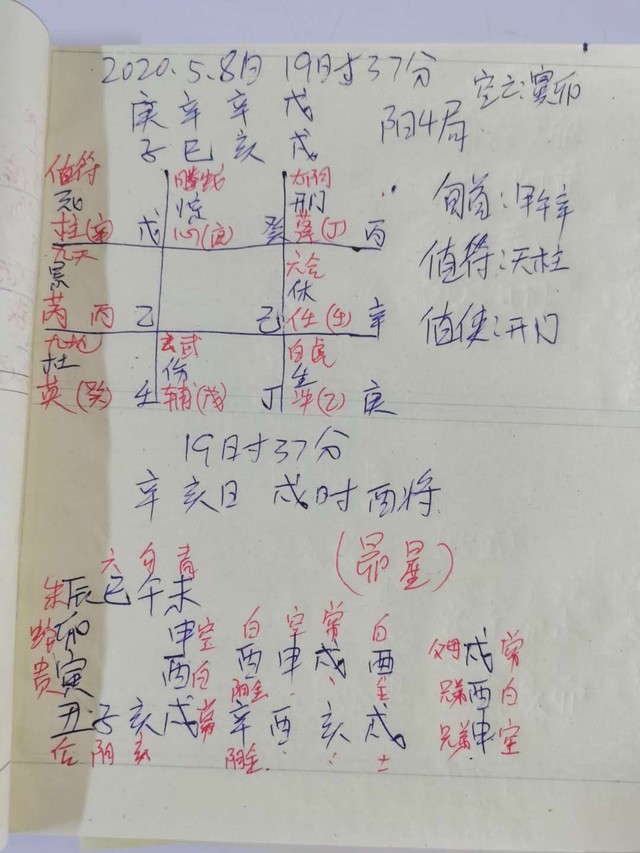 2020.5.8日 19时37分
空亡:寅卯
庚 辛 辛 戊
子 巳 亥 戌
阳4局
值符 螣蛇 太阴
惊 开门
柱(辛) 戊 心(庚) 癸 蓬(丁) 丙
旬首:甲午辛
九天 六合
景 休
芮 丙 乙 己 任(壬) 辛
值符:天柱
值使:开门
九地 玄武 白虎
杜 伤 生
英(癸) 壬 辅(戊) 丁 (乙) 庚
19时37分
辛亥日 戌时酉将
(昴星)
六 勾 青
朱 辰 巳 午 未
卯 申 空 白 空 常 白
贵 寅 酉 白 酉 申 戌 酉 父母 戌 常
阳金 兄弟 酉 白
丑 子 亥 戌 常 辛 酉 亥 戌 兄弟 申 空
阴 玄 阴金 土